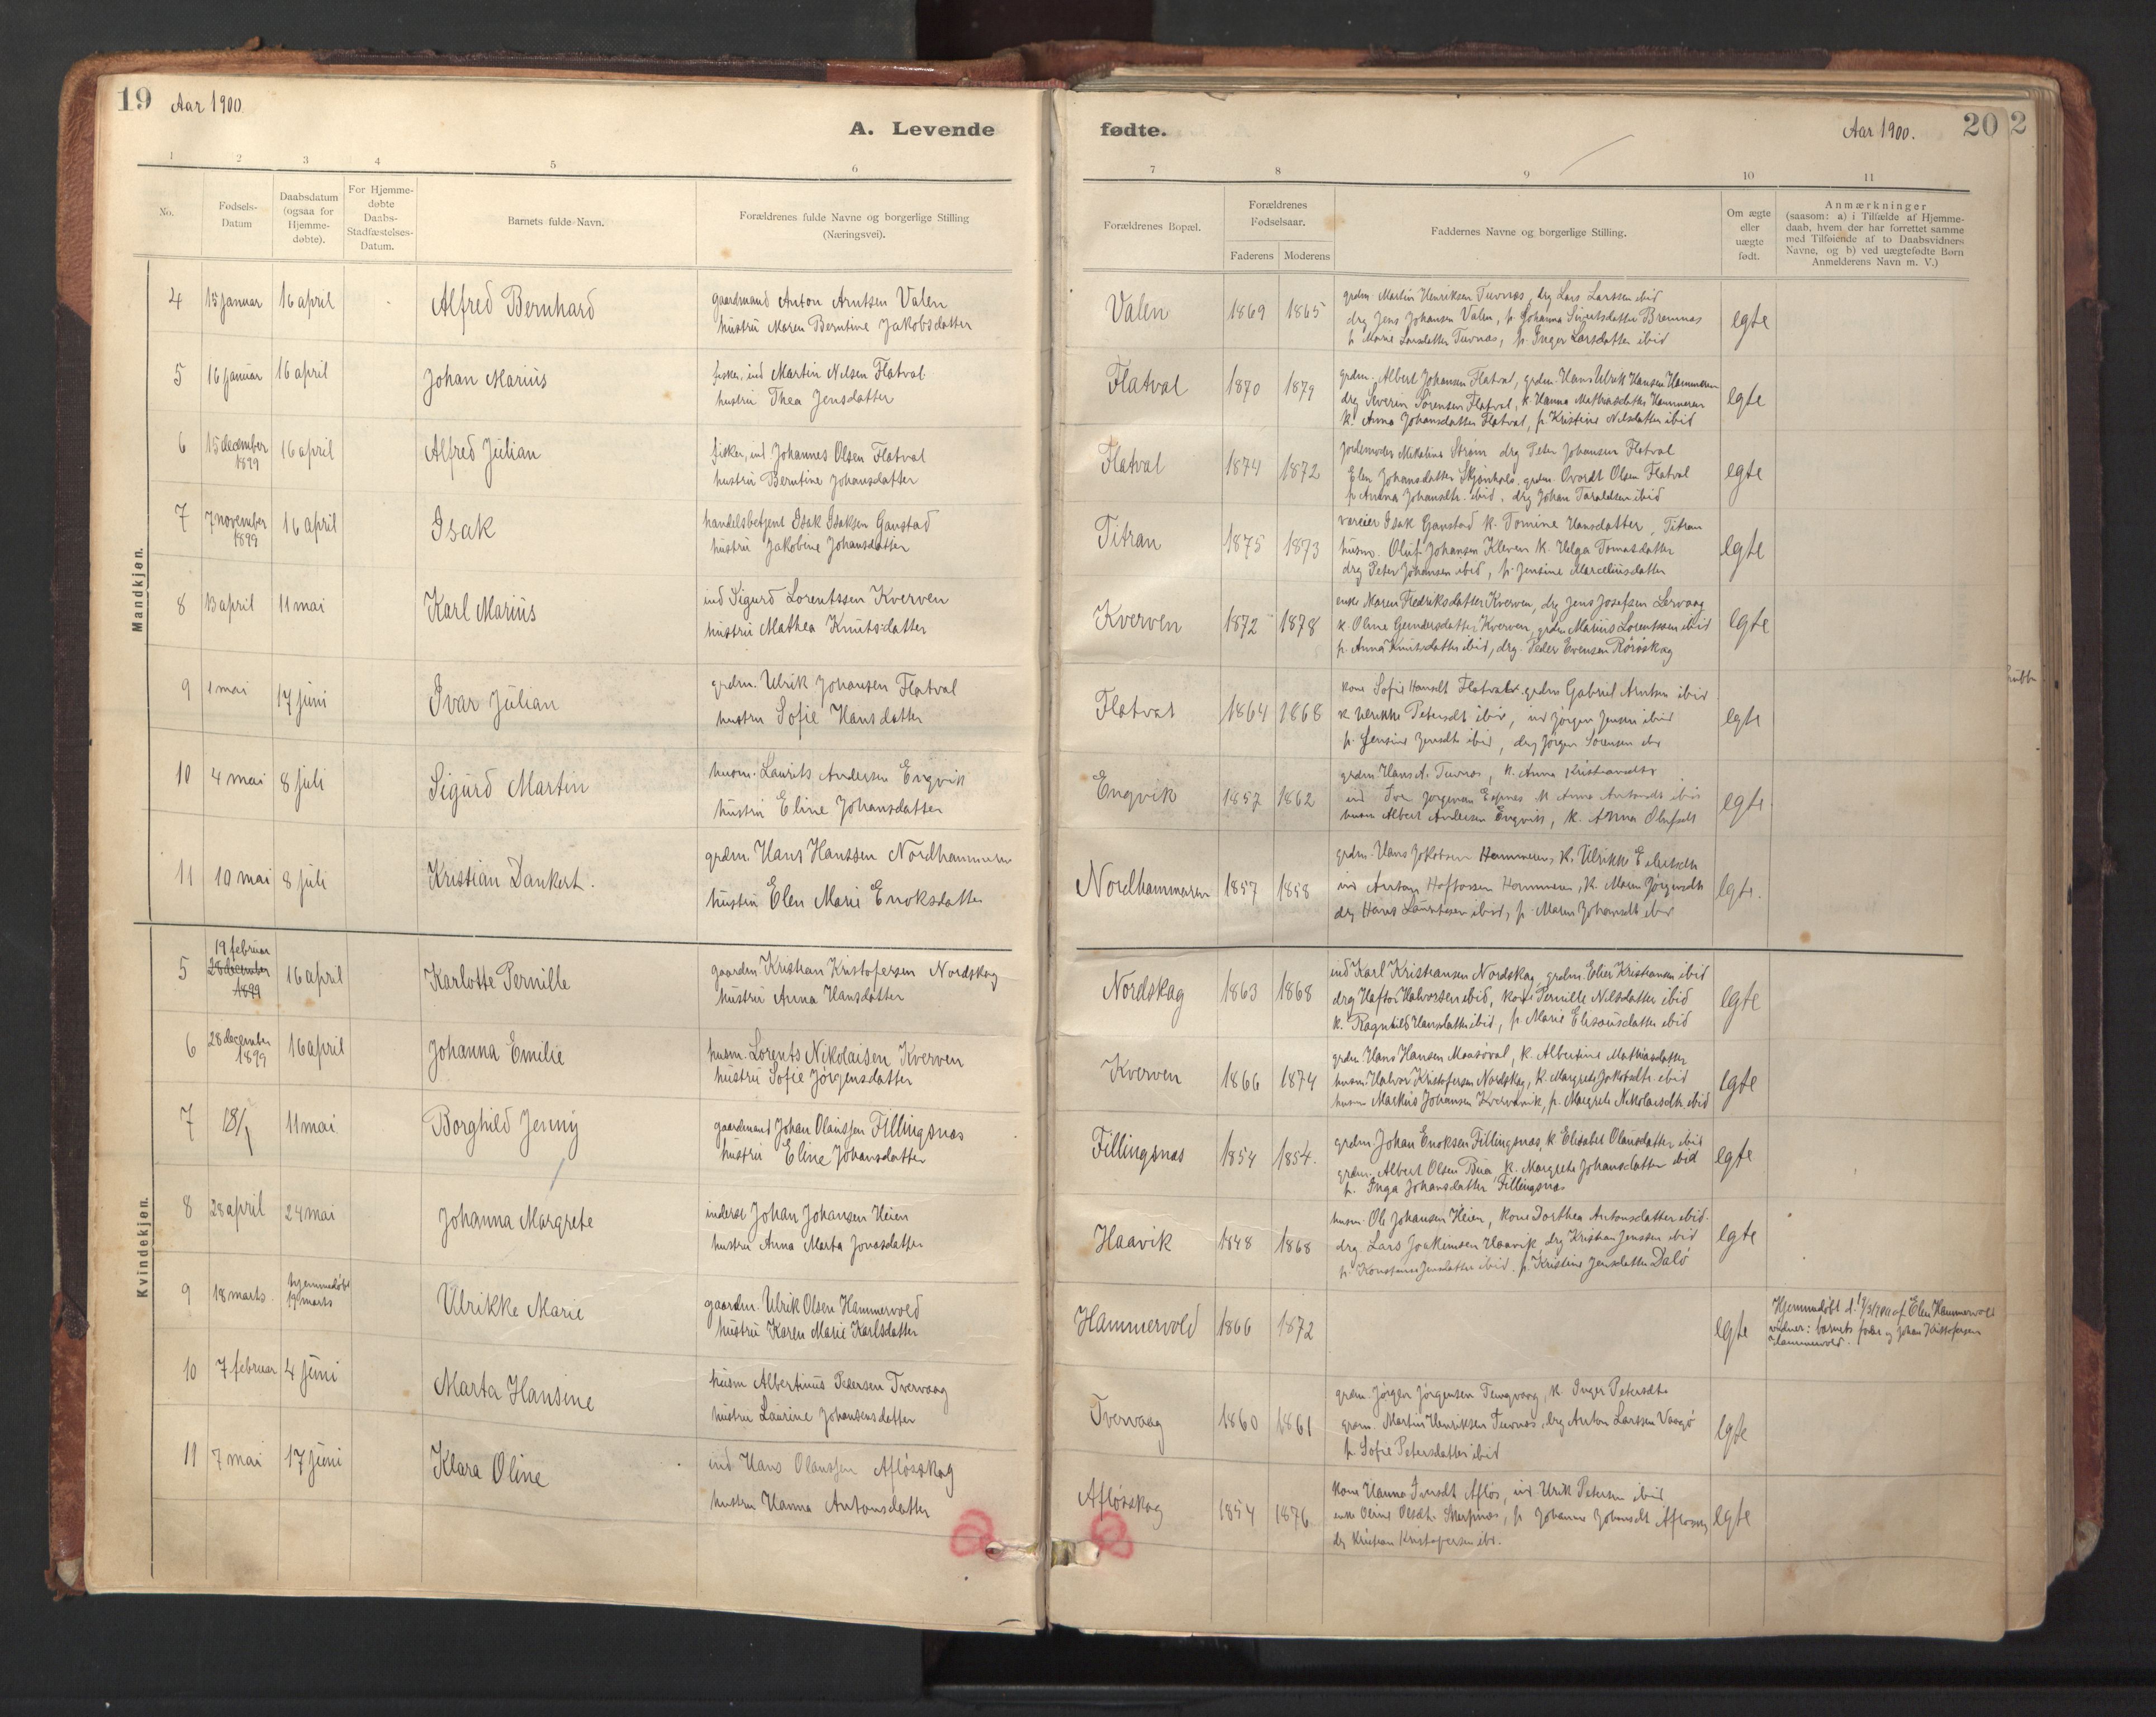 19 Aar 1900.
A. Levende
1 2 3 4 5 6
No.
Fødsels-
Datum
Daabsdatum
(ogsaa for
Hjemme-
døbte).
For Hjemme-
døbte
Daabs-
Stadfæstelses-
Datum.
Barnets fulde Navn.
Forældrenes fulde Navne og borgerlige Stilling
(Næringsvei).
Mandkjøn.
4 15 januar 16 april Alfred Bernhard gaardmand Anton Arntsen Valen
hustru Maren Berntine Jakobsdatter
5 16 januar 16 april Johan Marius fisker, ind Martin Nilsen Flatval
hustru Thea Jensdatter
6 15 december
1899 16 april Alfred Julian fisker, ind Johannes Olsen Flatval
hustru Berntine Johansdatter
7 7 november
1899 16 april Isak handelsbetjent Isak Isaksen Ganstad
hustru Jakobine Johansdatter
8 13 april 11 mai Karl Marius ind Sigurd Lorentssen Kverven
hustru Mathea Knutsdatter
9 1 mai 17 juni Ivar Julian grdm. Ulrik Johansen Flatval
hustru Sofie Hansdatter
10 4 mai 8 juli Sigurd Martin husm. Laurits Andersen Engvik
hustru Eline Johansdatter
11 10 mai 8 juli Kristian Dankert. grdm. Hans Hanssen Nordhammeren
hustru Elen Marie Enoksdatter
Kvindekjøn.
5 19 februar
28 december
1899 16 april Karlotte Pernille gaardm. Kristian Kristofersen Nordskag
hustru Anna Hansdatter
6 28 december
1899 16 april Johanna Emilie husm. Lorents Nikolaisen Kverven
hustru Sofie Jørgensdatter
7 18/1 11 mai Borghild Jenny gaardmand Johan Olaussen Fillingsnæs
hustru Eline Johansdatter
8 28 april 24 mai Johanna Margrete inderst Johan Johansen Heien
hustru Anna Marta Jonasdatter
9 18 marts hjemmedøbt
19 marts Ulrikke Marie gaardm. Ulrik Olsen Hammervold
hustru Karen Marie Karlsdatter
10 7 februar 4 juni Marta Hansine husm Albertinus Pedersen Tvervaag
hustru Laurine Johansensdatter
11 7 mai 17 juni Klara Oline ind Hans Olaussen Afløsskag
hustru Hanna Antonsdatter
fødte. Aar 1900. 20 2
7 8 9 10 11
Forældrenes Bopæl.
Forældrenes
Fødselsaar.
Faderens Moderens
Faddernes Navne og borgerlige Stilling.
Om ægte
eller
uægte
født.
Anmærkninger
(saasom: a) i Tilfælde af Hjemme-
daab, hvem der har forrettet samme
med Tilføiende af to Daabsvidners
Navne, og b) ved uægtefødte Børn
Anmelderens Navn m. V.)
Valen 1869 1865 grdm. Martin Henriksen Tuvnæs, drg Lars Larssen ibid
drg Jens Johansen Valen, p. Johanna Sivertsdatter Bremnæs
p Marie Larsdatter Tuvnæs, p. Inger Larsdatter ibid
egte
Flatval 1870 1879 grdm. Albert Johansen Flatval, grdm. Hans Ulrik Hansen Hammeren
drg Severin Sørensen Flatval, k. Hanna Mathiasdatter Hammeren
k. Anna Johansdatter Flatval, p. Kristine Nilsdatter ibid
egte
Flatval 1874 1872 jordemoder Mikaline Strøm drg Peter Johansen Flatval
Elen Johansdatter Skjønhals, grdm. Ovordt Olsen Flatval
p Anna Johansdtr. ibid, drg Johan Taraldsen ibid
egte
Titran 1875 1873 væreier Isak Ganstad k. Tomine Hansdatter, Titran
husm. Oluf Johansen Kleven k. Helga Tomasdatter
drg Peter Johansen ibid, p. Jensine Marceliusdatter
egte
Kverven 1872 1878 enke Maren Fredriksdatter Kverven, drg Jens Josefsen Lervaag
k. Oline Gundersdatter Kverven, grdm Marius Lorentssen ibid
p Anna Knutsdatter ibid, drg. Peder Evensen Rørøskag
egte
Flatval 1864 1868 kone Sofie Hansdt Flatval, grdm Gabriel Arntsen ibid
k Ulrikke Petersdt. ibid, ind Jørgen Jensen ibid
p. Jensine Jensdt. ibid, drg Jørgen Sørensen ibid
egte
Engvik 1857 1862 grdm. Hans A. Tuvnæs, k. Anna Kristiansdtr
ind Iver Jørgensen Espnes k Anna Antonsdt ibid
husm Albert Andersen Engvik, k. Anna Olufsdt
egte
Nordhammeren 1857 1858 grdm. Hans Jakobsen Hammeren, k. Ulrikke Eilertsdtr
ind Antoni Haftorsen Hammeren, k. Maren Jørgensdt
drg Hans Lauritssen ibid, p. Maren Johansdt ibid
egte.
Nordskag 1863 1868 ind Karl Kristiansen Nordskag, grdm. Elier Kristiansen ibid
drg Haftor Halvorsen ibid, kone Pernille Nilsdatter ibid
k. Ragnhild Hansdatter ibid, p. Marie Eliseusdatter ibid
egte
Kverven 1866 1874 grdm Hans Hansen Maasøval, k. Albertine Mathiasdatter
husm. Halvor Kristofersen Nordskag, k. Margrete Jakobsdtr. ibid
husm Markus Johansen Kvervavik, p. Margrete Nikolaisdtr. ibid
egte
Fillingsnæs 1854 1854. grdm Johan Enoksen Fillingsnæs, k Elisabet Olausdatter ibid
grdm. Albert Olsen Bua, k. Margrete Johansdatter ibid
p. Inga Johansdatter Fillingsnæs
egte
Haavik 1848 1868 husm. Ole Johansen Heien, kone Dorthea Antonsdatter ibid.
drg. Lars Joakimsen Haavik drg Kristian Jenssen ibid
p. Jensdatter ibid. p. Kristine Jensdatter Dalø
egte
Hammervold 1866 1872 egte Hjemmedøbt d. 19/3/1900 af Elen Hammervold
vidner: barnets fader og Johan Kristofersen
Hammervold.
Tvervaag 1860 1861 grdm. Jørgen Jørgensen Tungvaag, k. Inger Petersdtr
grdm. Martin Henriksen Tuvnæs, drg Anton Larssen Vaagø
p. Sofie Petersdatter ibid
egte
Afløsskag 1854 1876 kone Hanna Iversdt Afløs, ind. Ulrik Petersen ibid
enke Oline Olsdt. Skarpnæs, p Johanna Johansdt Afløsskag
drg Kristian Kristofersen ibid.
egte